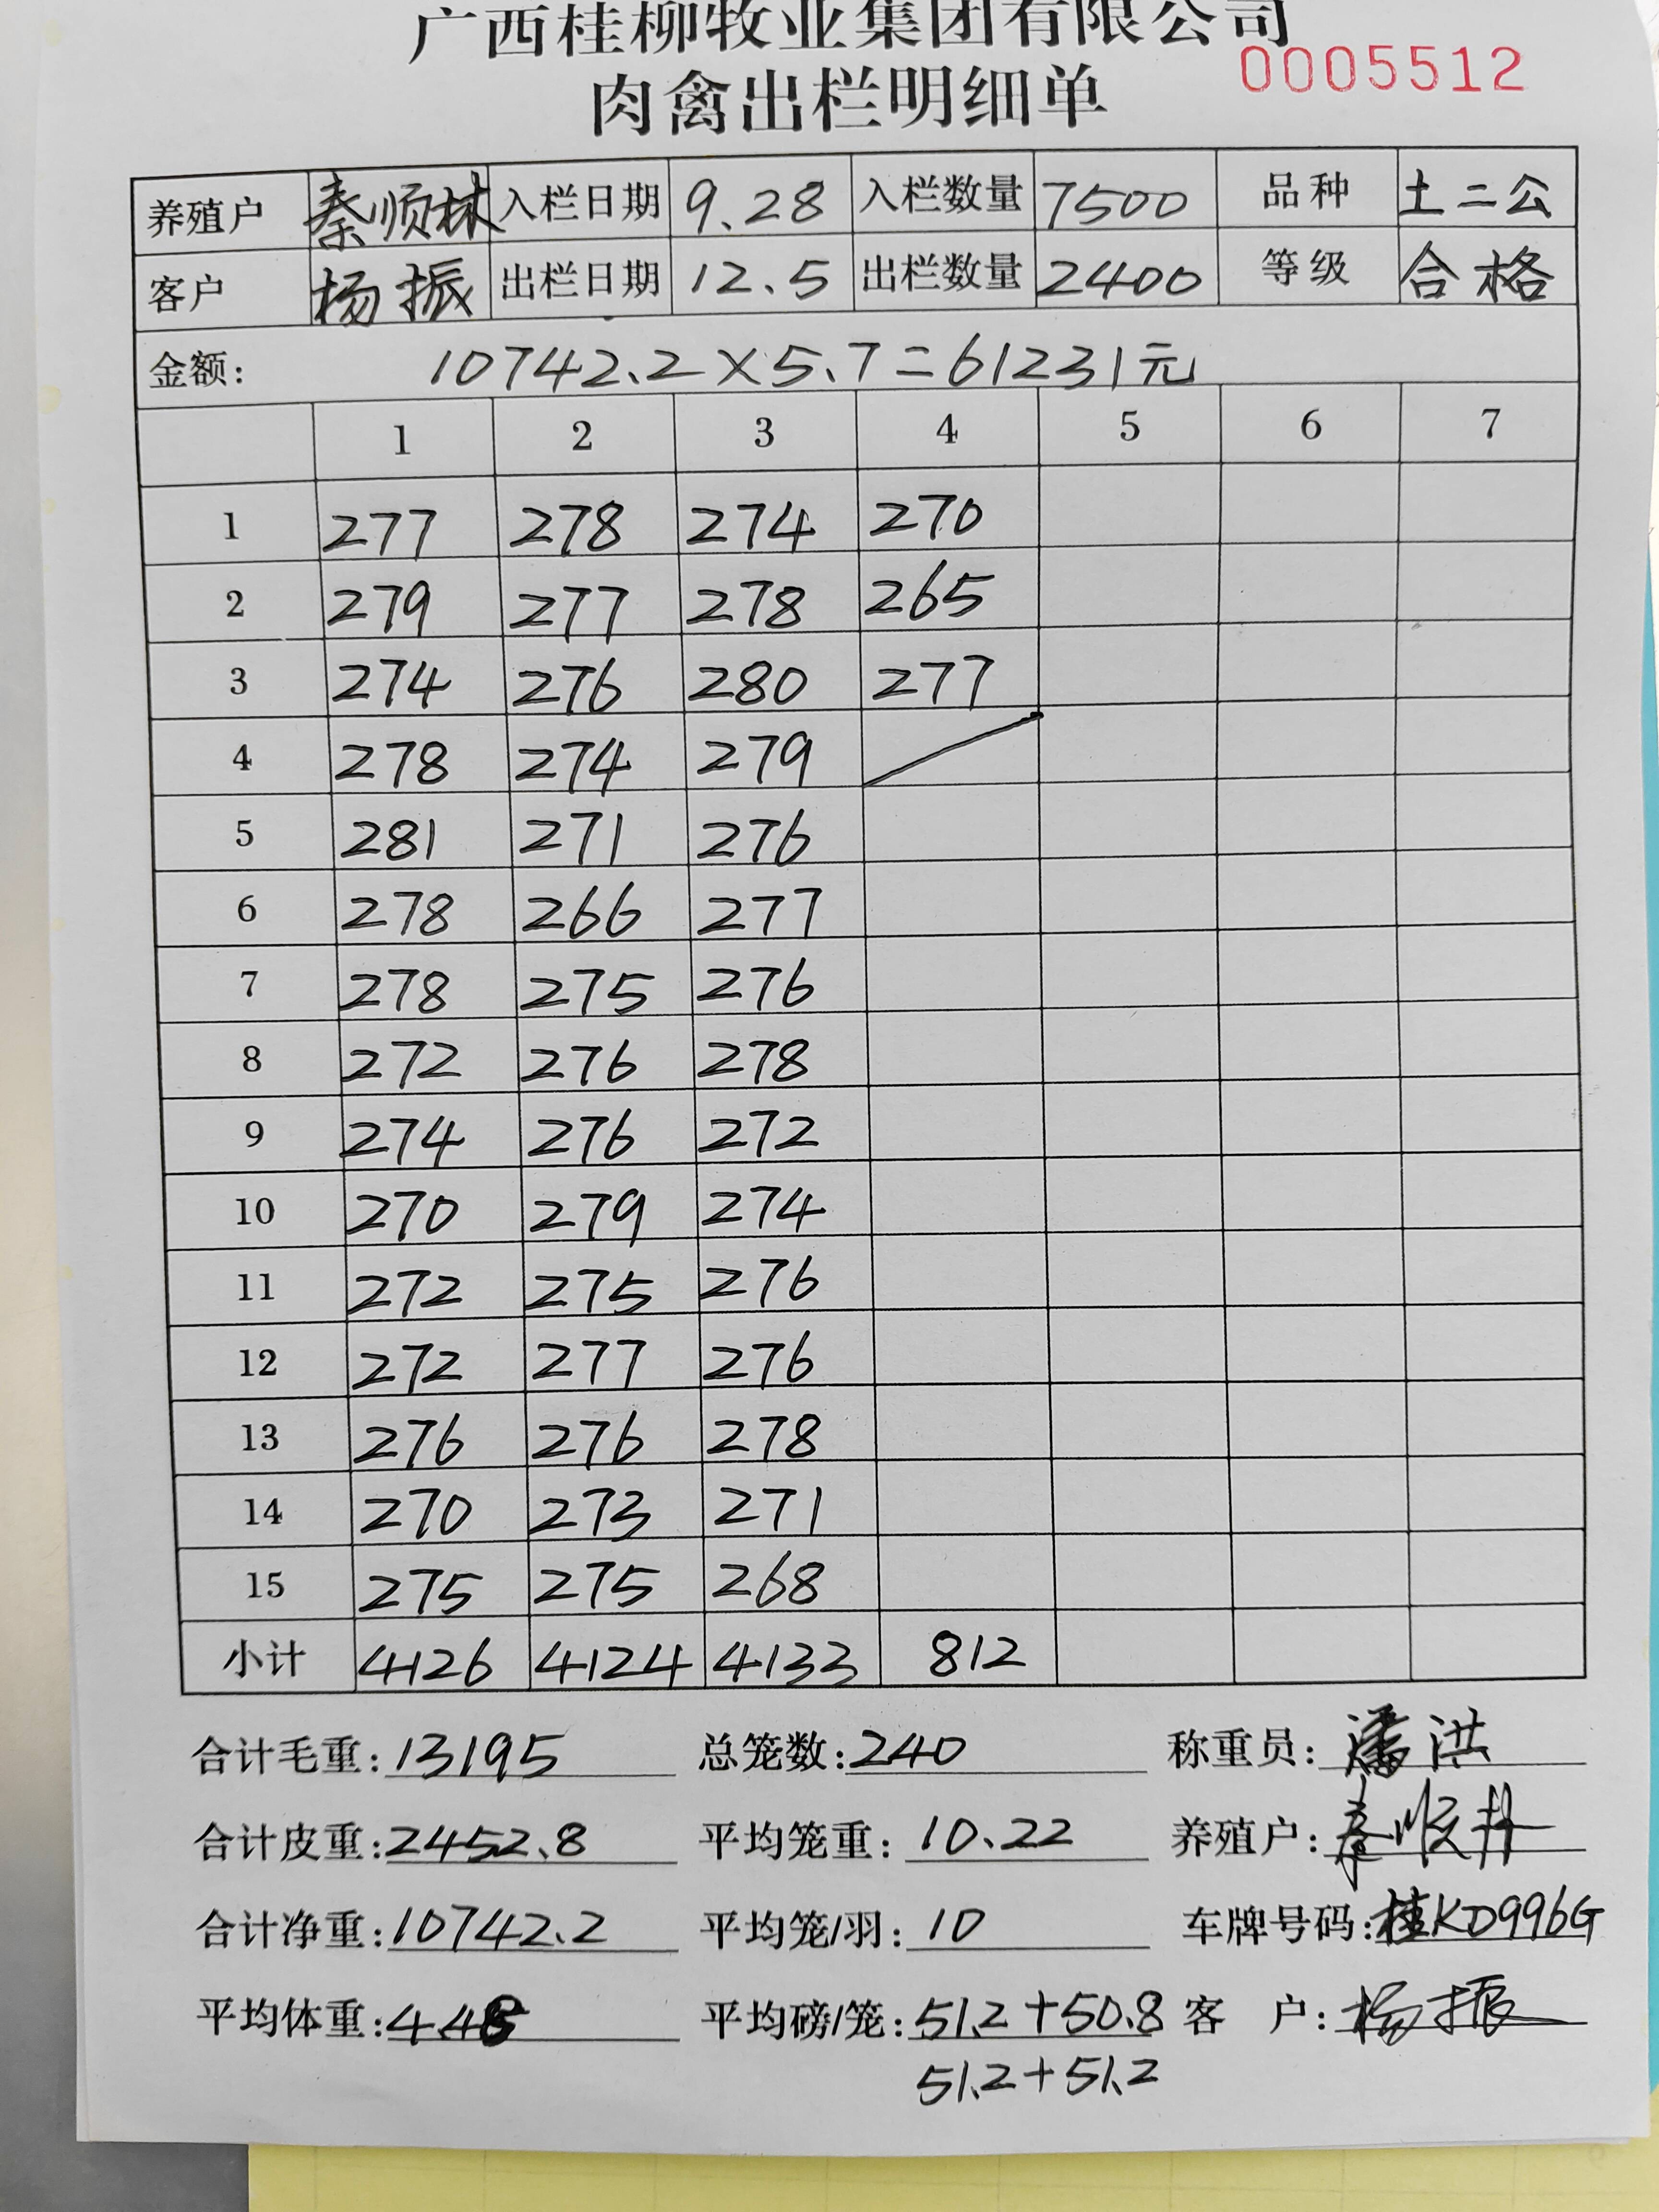 广西桂柳牧业集团有限公司
0005512
肉禽出栏明细单
养殖户 秦顺林 入栏日期 9.28 入栏数量 7500 品种 土二公
客户 杨振 出栏日期 12.5 出栏数量 2400 等级 合格
金额: 10742.2×5.7=61231元
1 2 3 4 5 6 7
1 277 278 274 270
2 279 277 278 265
3 274 276 280 277
4 278 274 279
5 281 271 276
6 278 266 277
7 278 275 276
8 272 276 278
9 274 276 272
10 270 279 274
11 272 275 276
12 272 277 276
13 276 276 278
14 270 273 271
15 275 275 268
小计 4126 4124 4133 812
合计毛重: 13195 总笼数: 240 称重员: 潘洪
合计皮重: 2452.8 平均笼重: 10.22 养殖户: 秦顺林
合计净重: 10742.2 平均笼/羽: 10 车牌号码: 桂KD996G
平均体重: 4.48 平均磅/笼: 51.2+50.8 客 户: 杨振
51.2+51.2